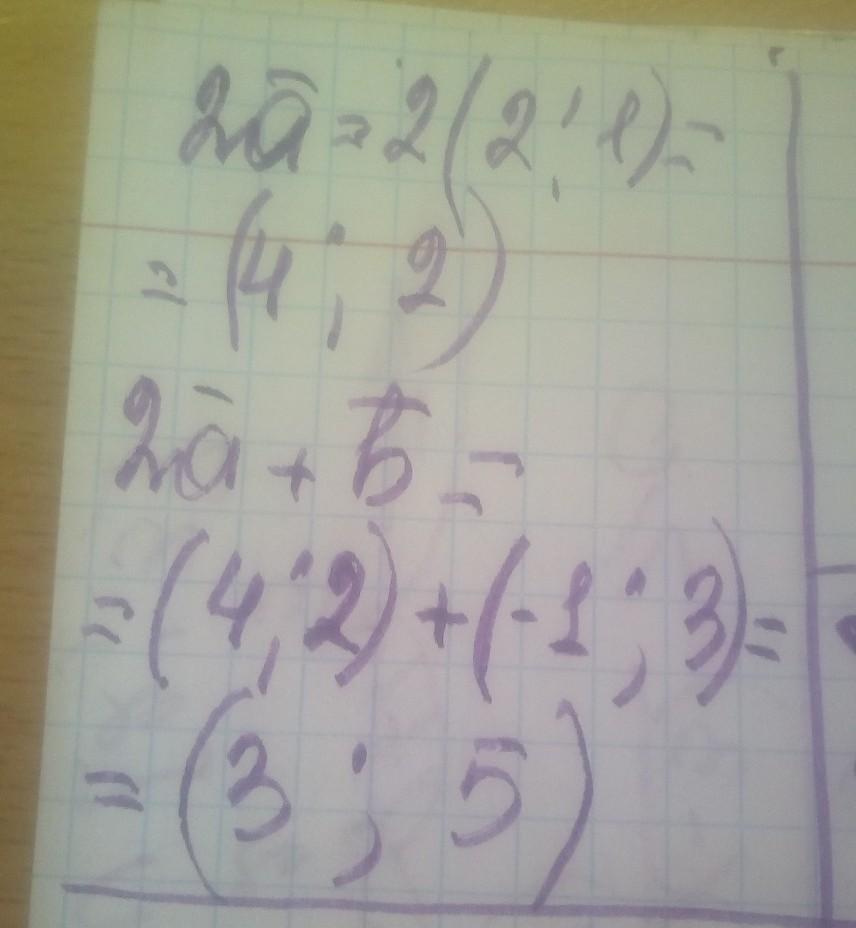 2ā = 2(2; 1) =
= (4; 2)
2ā + b̄ =
= (4; 2) + (-1; 3) =
= (3; 5)